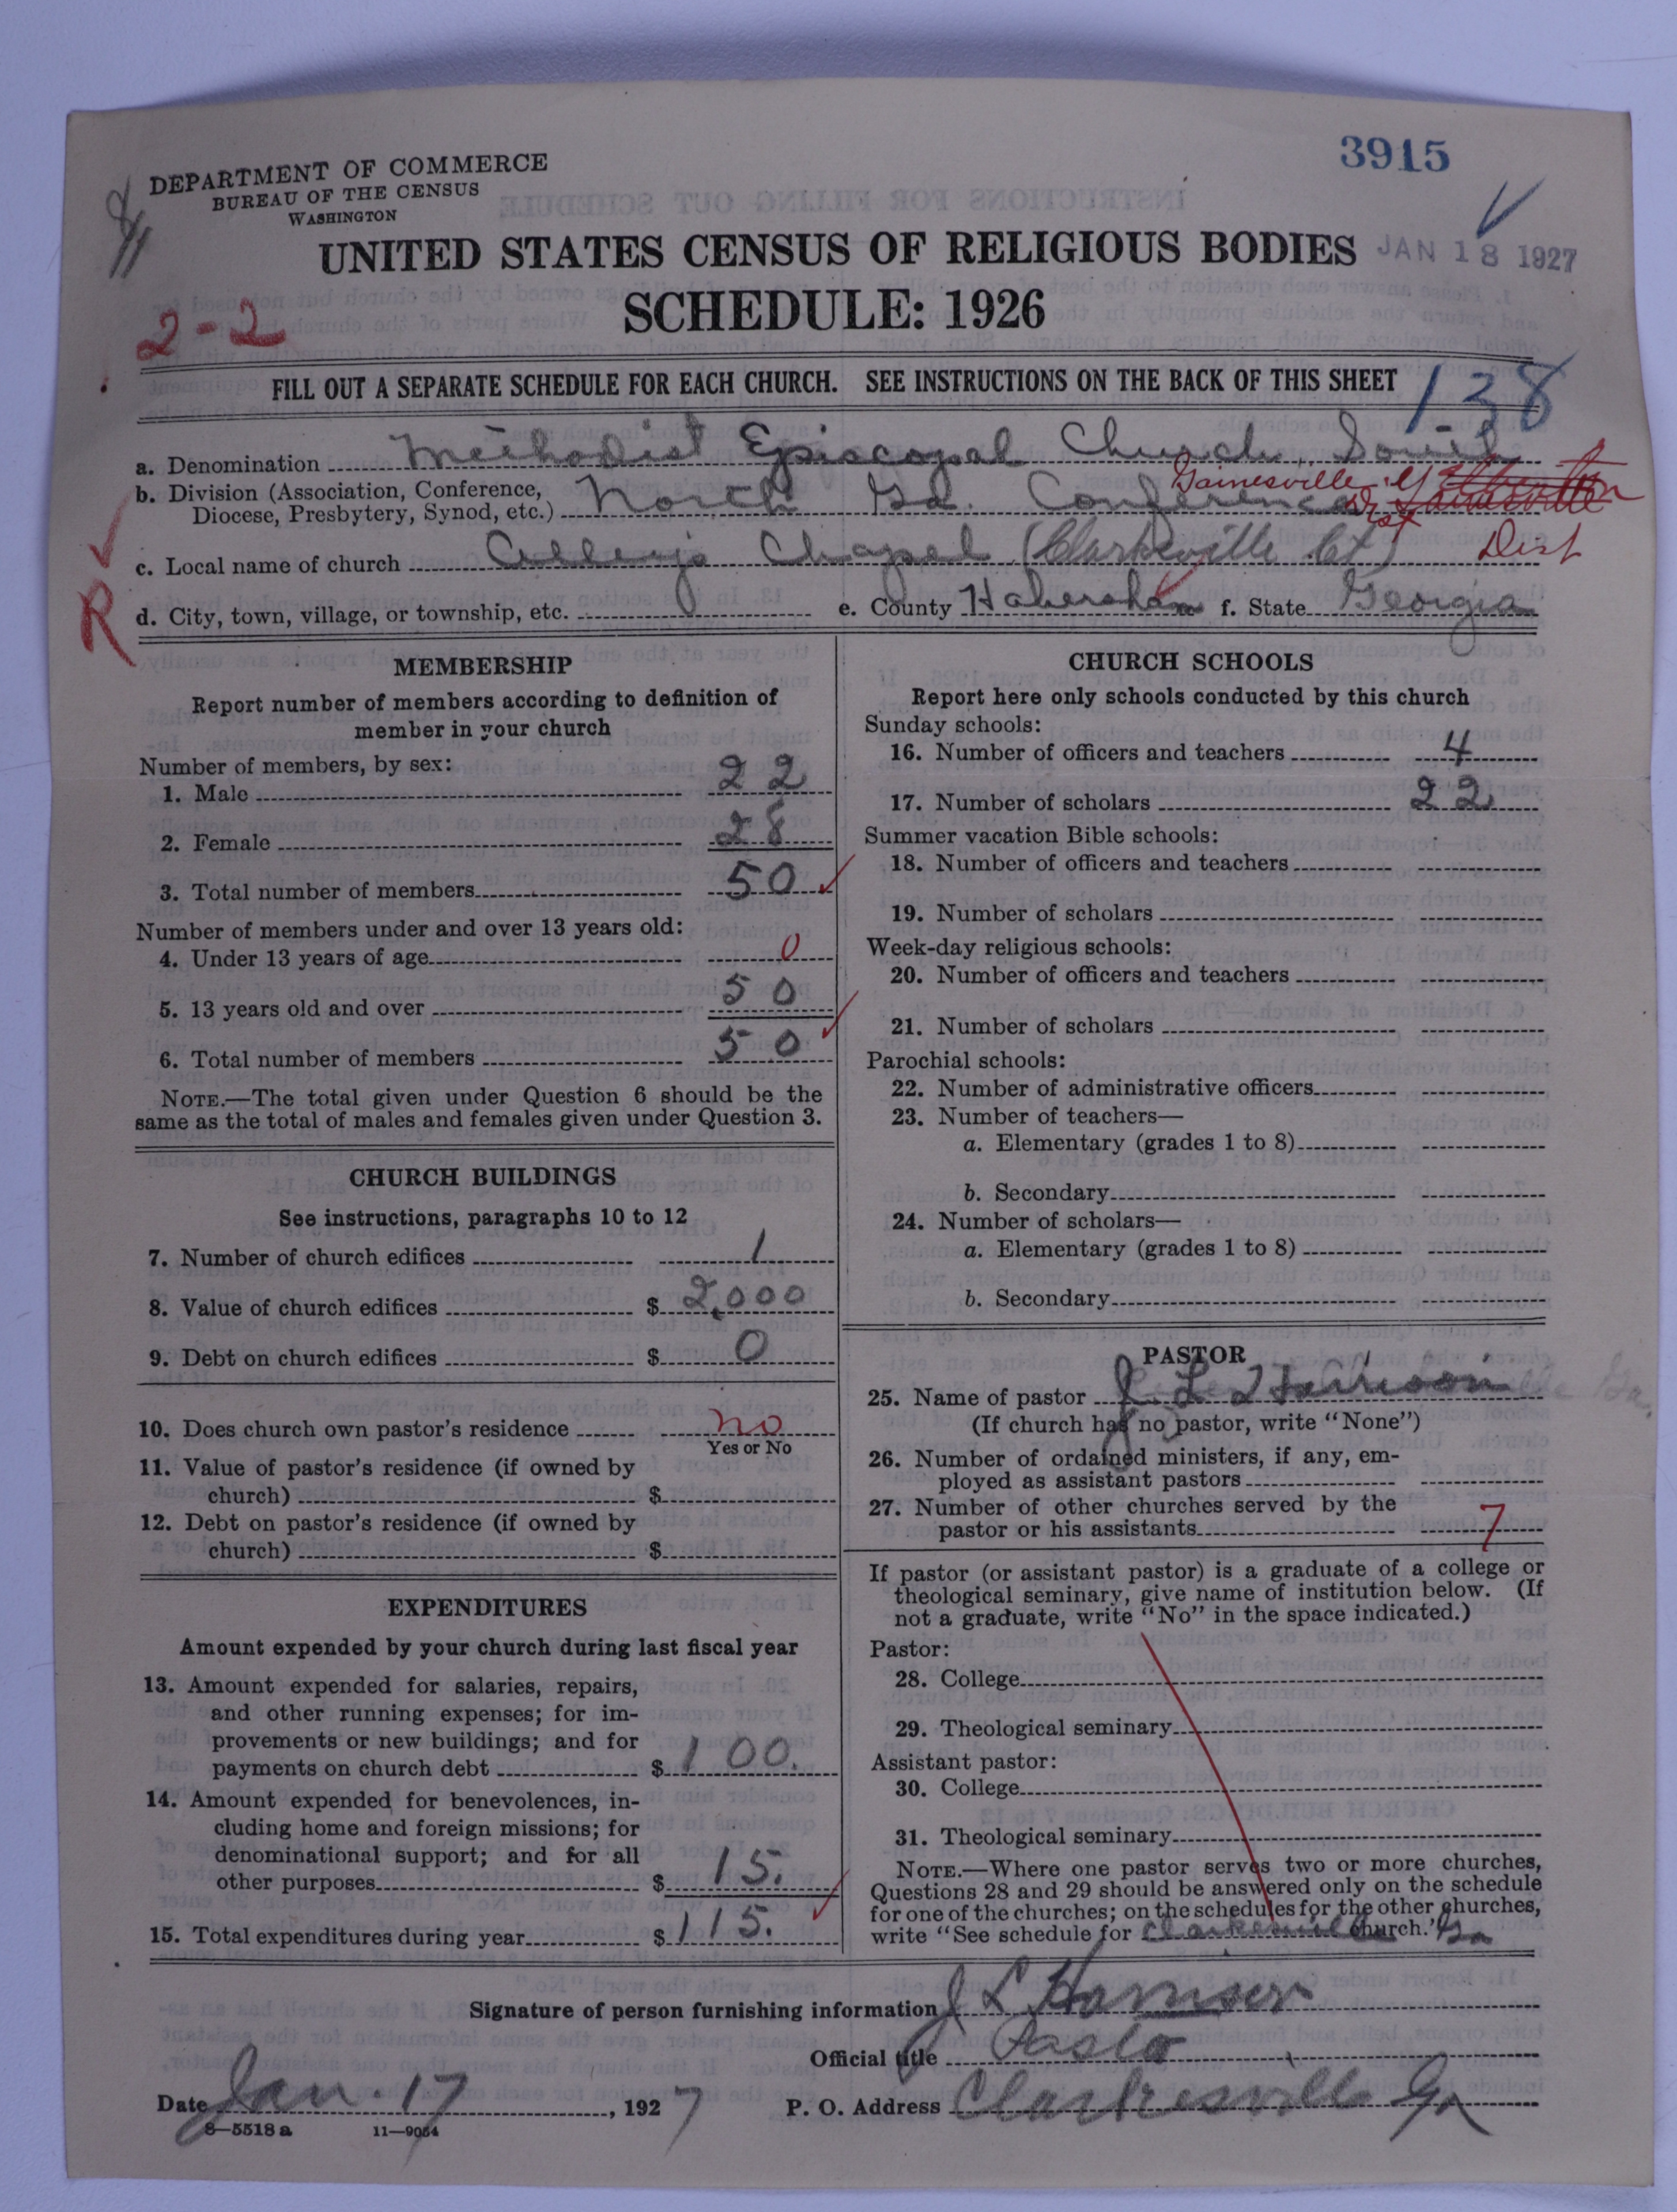 3915
DEPARTMENT OF COMMERCE
BUREAU OF THE CENSUS
WASHINGTON
UNITED STATES CENSUS OF RELIGIOUS BODIES
JAN 18 1927
SCHEDULE: 1926
2-2
FILL OUT A SEPARATE SCHEDULE FOR EACH CHURCH. SEE INSTRUCTIONS ON THE BACK OF THIS SHEET
138
a. Denomination Methodist Episcopal Church, South
b. Division (Association, Conference, Diocese, Presbytery, Synod, etc.) North Ga. Conference Gainesville
Dist
c. Local name of church Chapel (Clarkesville Ct)
R
d. City, town, village, or township, etc. e. County Habersham f. State Georgia
MEMBERSHIP
Report number of members according to definition of
member in your church
Number of members, by sex:
1. Male 22
2. Female 28
3. Total number of members 50
Number of members under and over 13 years old:
4. Under 13 years of age 0
5. 13 years old and over 50
6. Total number of members 50
NOTE.—The total given under Question 6 should be the
same as the total of males and females given under Question 3.
CHURCH BUILDINGS
See instructions, paragraphs 10 to 12
7. Number of church edifices 1
8. Value of church edifices $ 2,000
9. Debt on church edifices $ 0
10. Does church own pastor's residence no
Yes or No
11. Value of pastor's residence (if owned by
church) $
12. Debt on pastor's residence (if owned by
church) $
EXPENDITURES
Amount expended by your church during last fiscal year
13. Amount expended for salaries, repairs,
and other running expenses; for im-
provements or new buildings; and for
payments on church debt $ 100.
14. Amount expended for benevolences, in-
cluding home and foreign missions; for
denominational support; and for all
other purposes $ 15.
15. Total expenditures during year $ 115.
CHURCH SCHOOLS
Report here only schools conducted by this church
Sunday schools:
16. Number of officers and teachers 4
17. Number of scholars 22
Summer vacation Bible schools:
18. Number of officers and teachers
19. Number of scholars
Week-day religious schools:
20. Number of officers and teachers
21. Number of scholars
Parochial schools:
22. Number of administrative officers
23. Number of teachers—
a. Elementary (grades 1 to 8)
b. Secondary
24. Number of scholars—
a. Elementary (grades 1 to 8)
b. Secondary
PASTOR
25. Name of pastor J. L. Harrison
(If church has no pastor, write "None")
26. Number of ordained ministers, if any, em-
ployed as assistant pastors
27. Number of other churches served by the
pastor or his assistants 7
If pastor (or assistant pastor) is a graduate of a college or
theological seminary, give name of institution below. (If
not a graduate, write "No" in the space indicated.)
Pastor:
28. College
29. Theological seminary
Assistant pastor:
30. College
31. Theological seminary
NOTE.—Where one pastor serves two or more churches,
Questions 28 and 29 should be answered only on the schedule
for one of the churches; on the schedules for the other churches,
write "See schedule for Clarkesville church." Ga
Signature of person furnishing information J L Harrison
Official title Pastor
Date Jan. 17, 1927 P. O. Address Clarkesville Ga
8—5518 a 11—9054